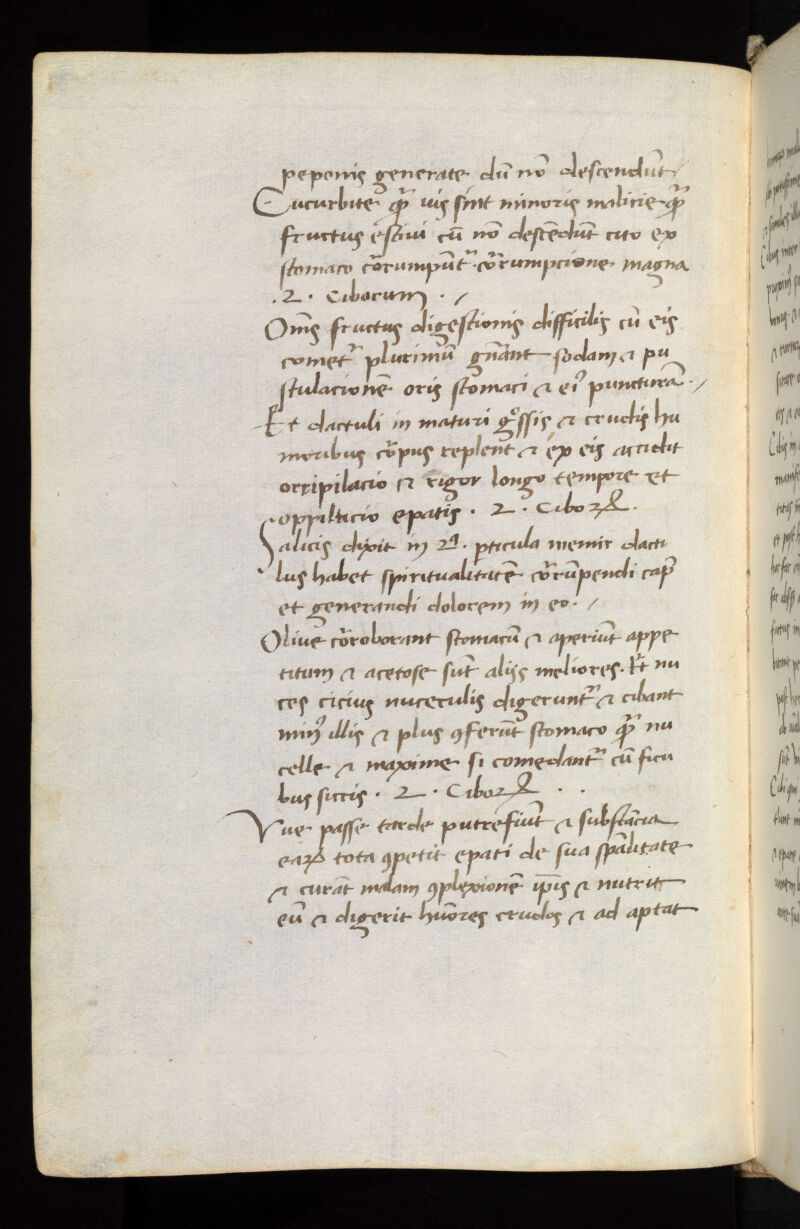 peponis generate dū nō descendūt
Cucurbite quāuis sint minoris malicie quā
fructus estiui cū nō descēdūt cito ex
stomaco corrumpūtᷣ corrumpcione magna
.2. Ciborum . /
Om̄s fructus digestionis difficilis cū eis
cometᷣ plurimū gn̄ant sodam ⁊ pu
stulacionē oris stomaci ⁊ eiꝰ puncturā . /
Et dactuli in maturi grossis ⁊ crudis hu
moribus corpus replent ⁊ ex eis accidit
orripilacio ⁊ rigor longo tempore et
oppilacio epatis . 2 . Ciboꝝ .
Galicis dixit in 21. ꝑticula memir dacti
lus habet spiritualitatē corrūpendi capᷣ
et generandi dolorem in eo . /
Oliue corroborant stomacū ⁊ aperiūt appe
titum ⁊ acetose sūt alijs meliores . Et nu
ces cicius nucerulis digeruntᷣ ⁊ cibant
minꝰ illis ⁊ plus ꝯferūt stomaco quā nu
celle ⁊ maxime si comedantᷣ cū ficu
bus siccis . 2 . Ciboꝝ . .
Vue passe tarde putrefiūt ⁊ substācia
eaꝝ tota ꝯpetit epati de sua sp̄alitate
⁊ curāt malam ꝯplexionē ip̄is ⁊ nutrit
eū ⁊ digerit hūores crudos ⁊ ad aptat